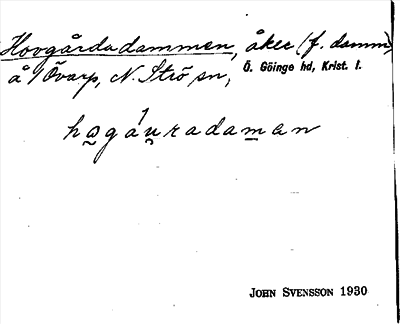 Hovgårdadammen, åker (f. damm)
å Övarp, N. Strö sn, Ö. Göinge hd, Krist. l.
ha̰gáṵradam̲an
JOHN SVENSSON 1930